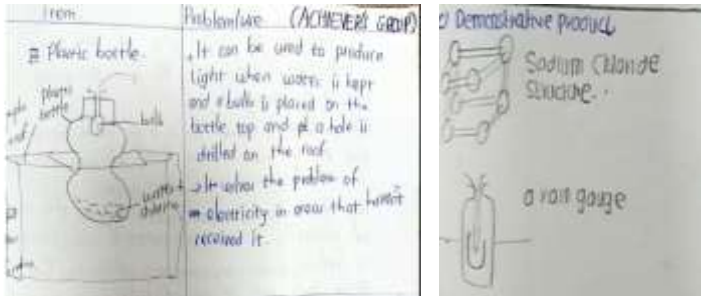 Item
Problem/use (ACHIEVERS GROUP)
Plastic bottle.
plastic
bottle
bulb
water +
. It can be used to produce
light when water is kept
and a bulb is placed on the
bottle top and a hole is
drilled on the roof.
→ It solves the problem of
electricity in areas that haven't
received it.
c) Demonstrative product
Sodium Chloride
Structure.
a rain gauge